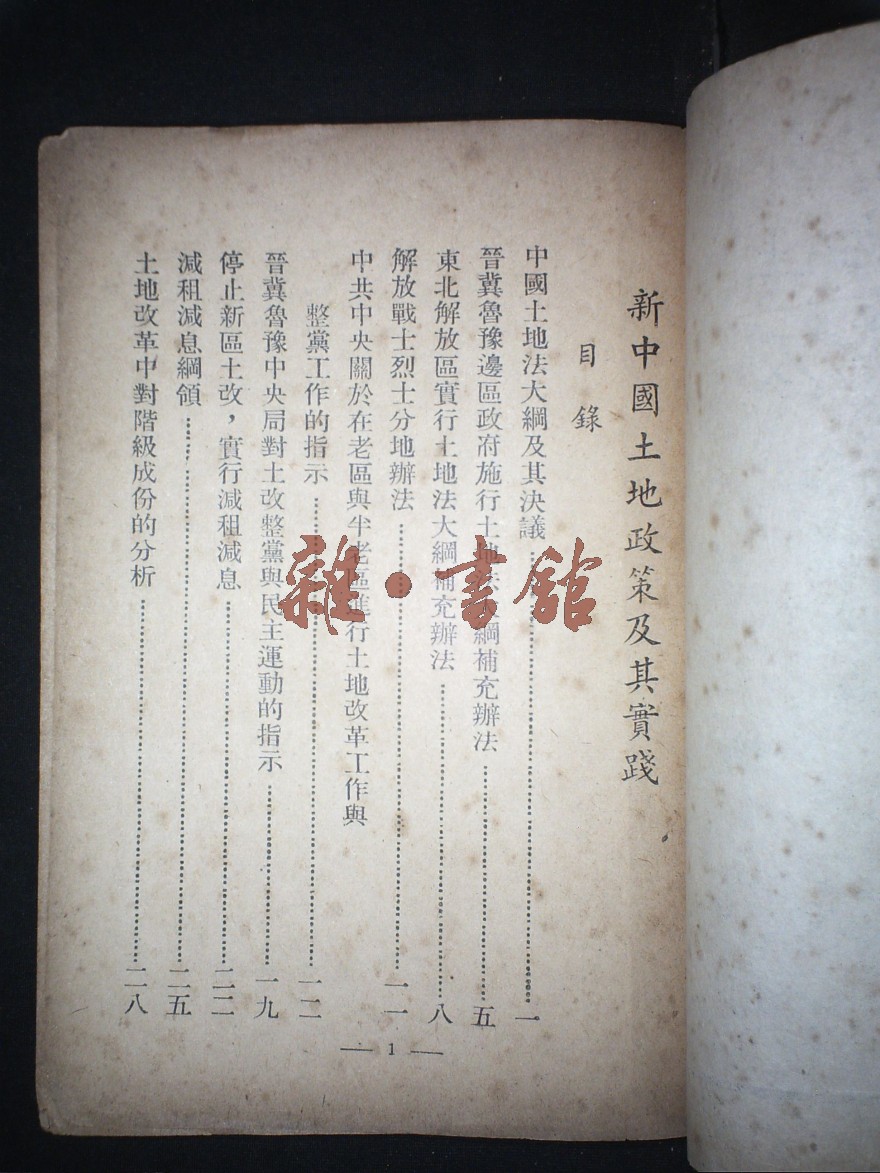 新中國土地政策及其實踐
目錄
中國土地法大綱及其決議……一
晉冀魯豫邊區政府施行土地法大綱補充辦法……五
東北解放區實行土地法大綱補充辦法……八
解放戰士烈士分地辦法……一一
中共中央關於在老區與半老區進行土地改革工作與
整黨工作的指示……一二
晉冀魯豫中央局對土改整黨與民主運動的指示……一九
停止新區土改，實行減租減息……二二
減租減息綱領……二五
土地改革中對階級成份的分析……二八
— 1 —
雜·書館